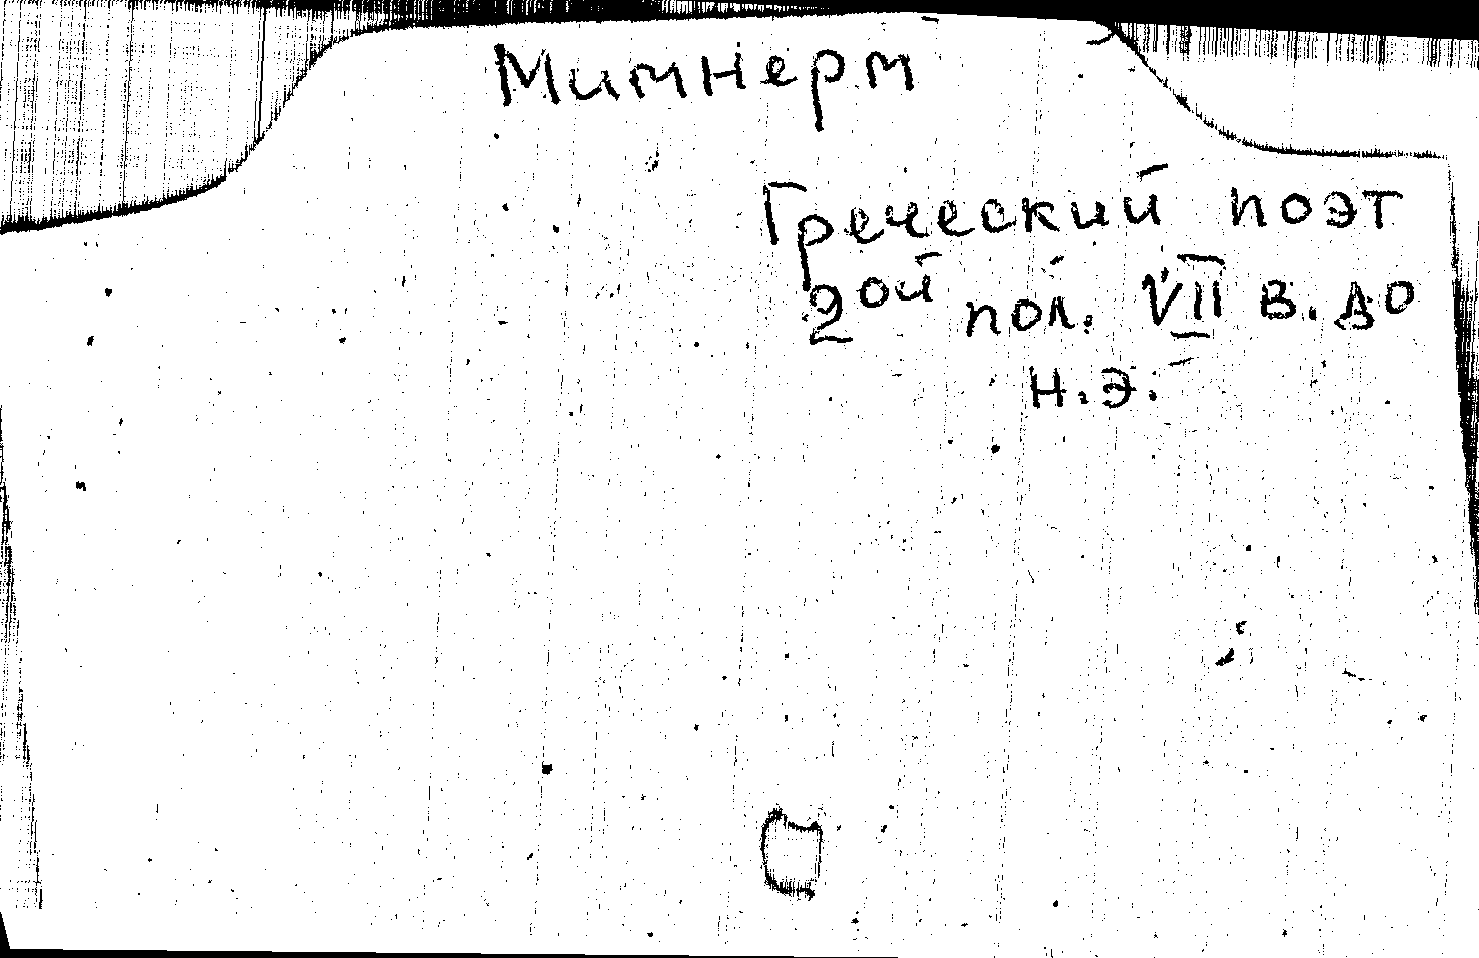 Мимнерм
Греческий поэт
2ой пол. VII в. до
н.э.